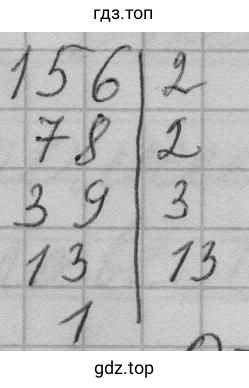 гдз.топ
156 | 2
78 | 2
39 | 3
13 | 13
1 |
gdz.top